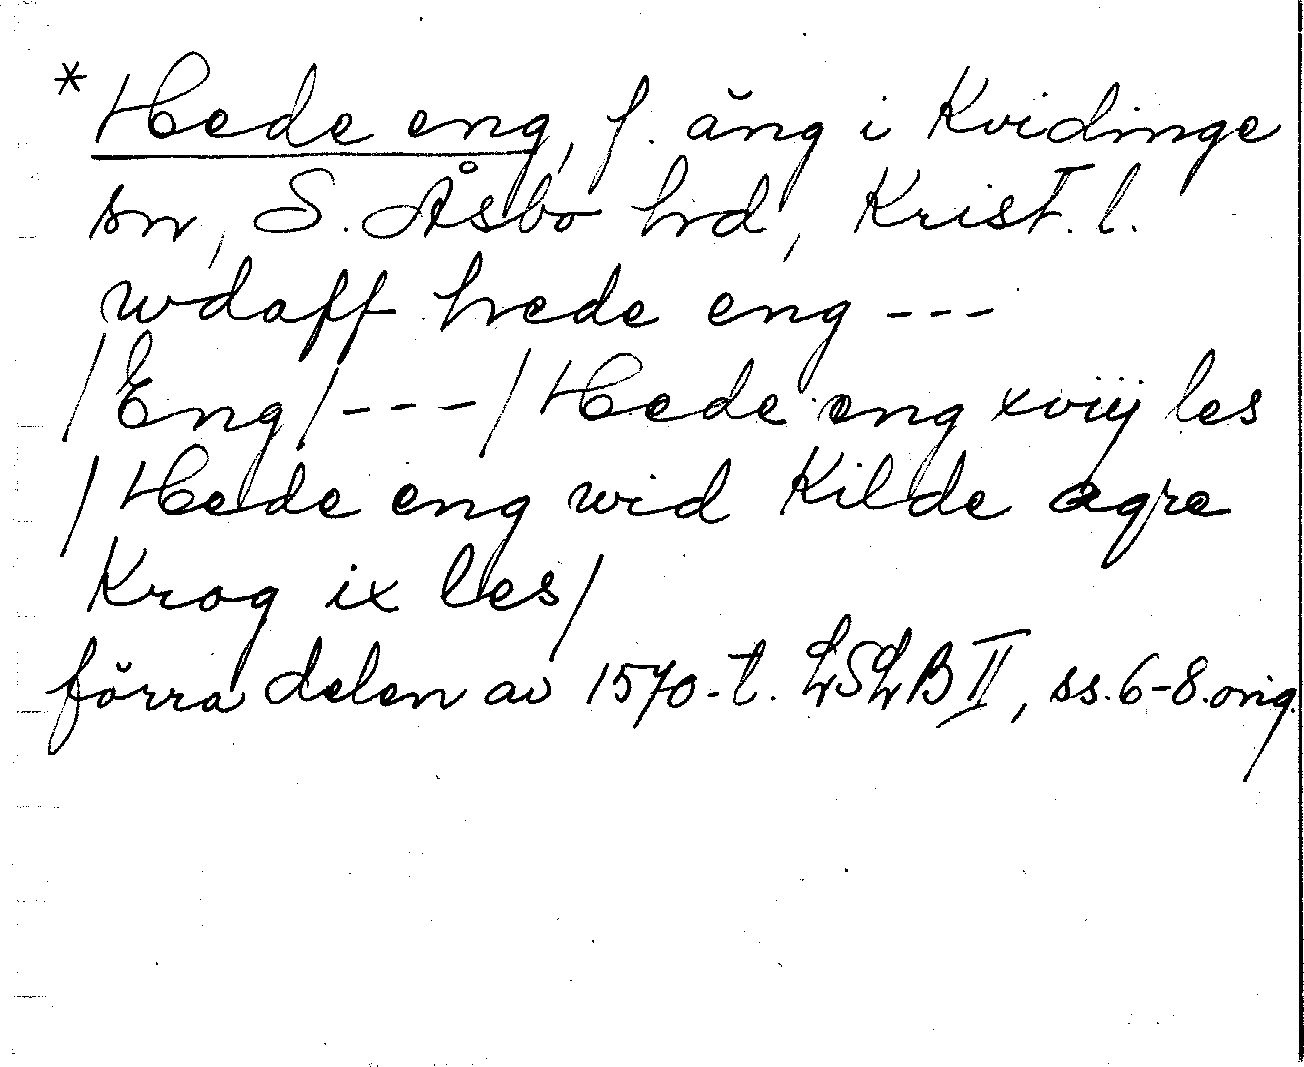 *Hede eng, f. äng i Kvidinge
sn, S. Åsbo hd, Krist. l.
wdaff hede eng ---
/Eng/---/Hede eng xviij les
/Hede eng wid Kilde agre
Krog ix les/
förra delen av 1570-t. LSLB II, ss. 6-8. orig.